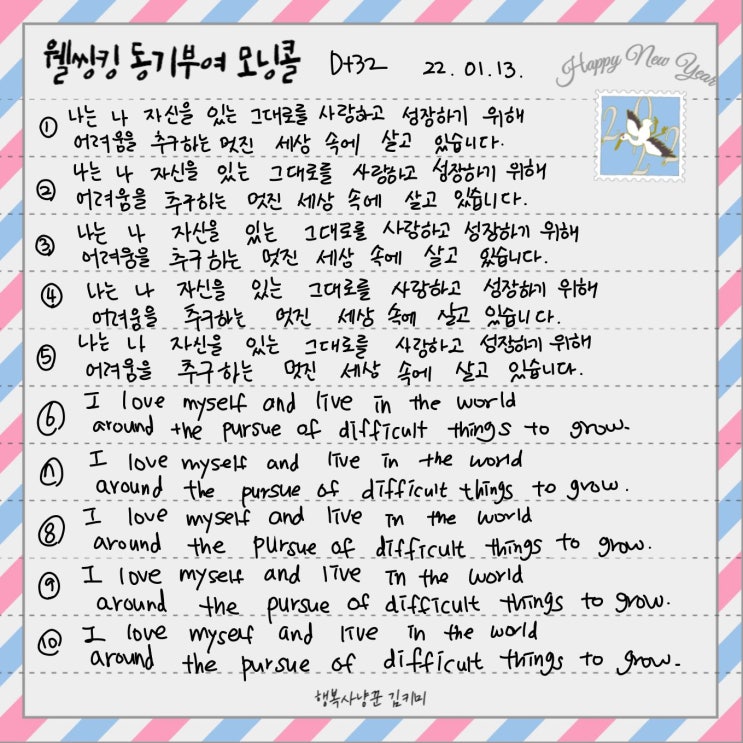 웰씽킹 동기부여 모닝콜 D+32 22.01.13.
Happy New Year
2022
① 나는 나 자신을 있는 그대로를 사랑하고 성장하기 위해
어려움을 추구하는 멋진 세상 속에 살고 있습니다.
② 나는 나 자신을 있는 그대로를 사랑하고 성장하기 위해
어려움을 추구하는 멋진 세상 속에 살고 있습니다.
③ 나는 나 자신을 있는 그대로를 사랑하고 성장하기 위해
어려움을 추구하는 멋진 세상 속에 살고 있습니다.
④ 나는 나 자신을 있는 그대로를 사랑하고 성장하기 위해
어려움을 추구하는 멋진 세상 속에 살고 있습니다.
⑤ 나는 나 자신을 있는 그대로를 사랑하고 성장하기 위해
어려움을 추구하는 멋진 세상 속에 살고 있습니다.
⑥ I love myself and live in the world
around the pursue of difficult things to grow.
⑦ I love myself and live in the world
around the pursue of difficult things to grow.
⑧ I love myself and live in the world
around the pursue of difficult things to grow.
⑨ I love myself and live in the world
around the pursue of difficult things to grow.
⑩ I love myself and live in the world
around the pursue of difficult things to grow.
행복사냥꾼 김키미